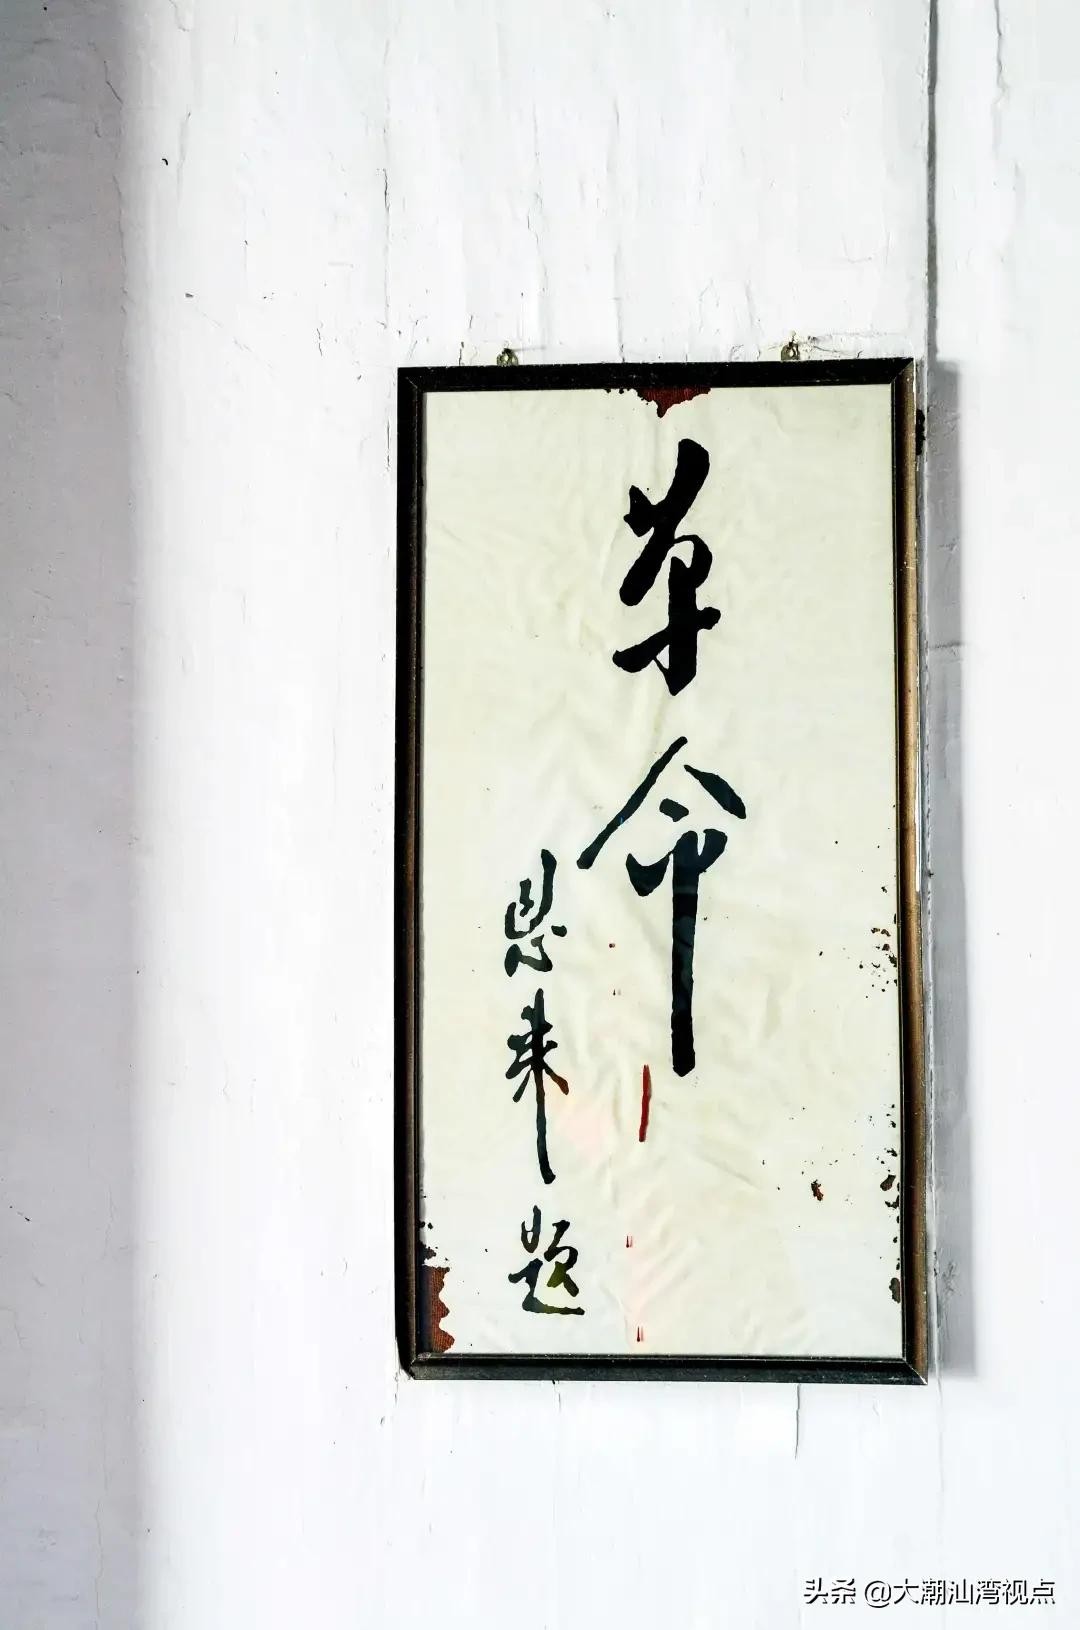 革命
恩来题
头条 @大潮汕湾视点